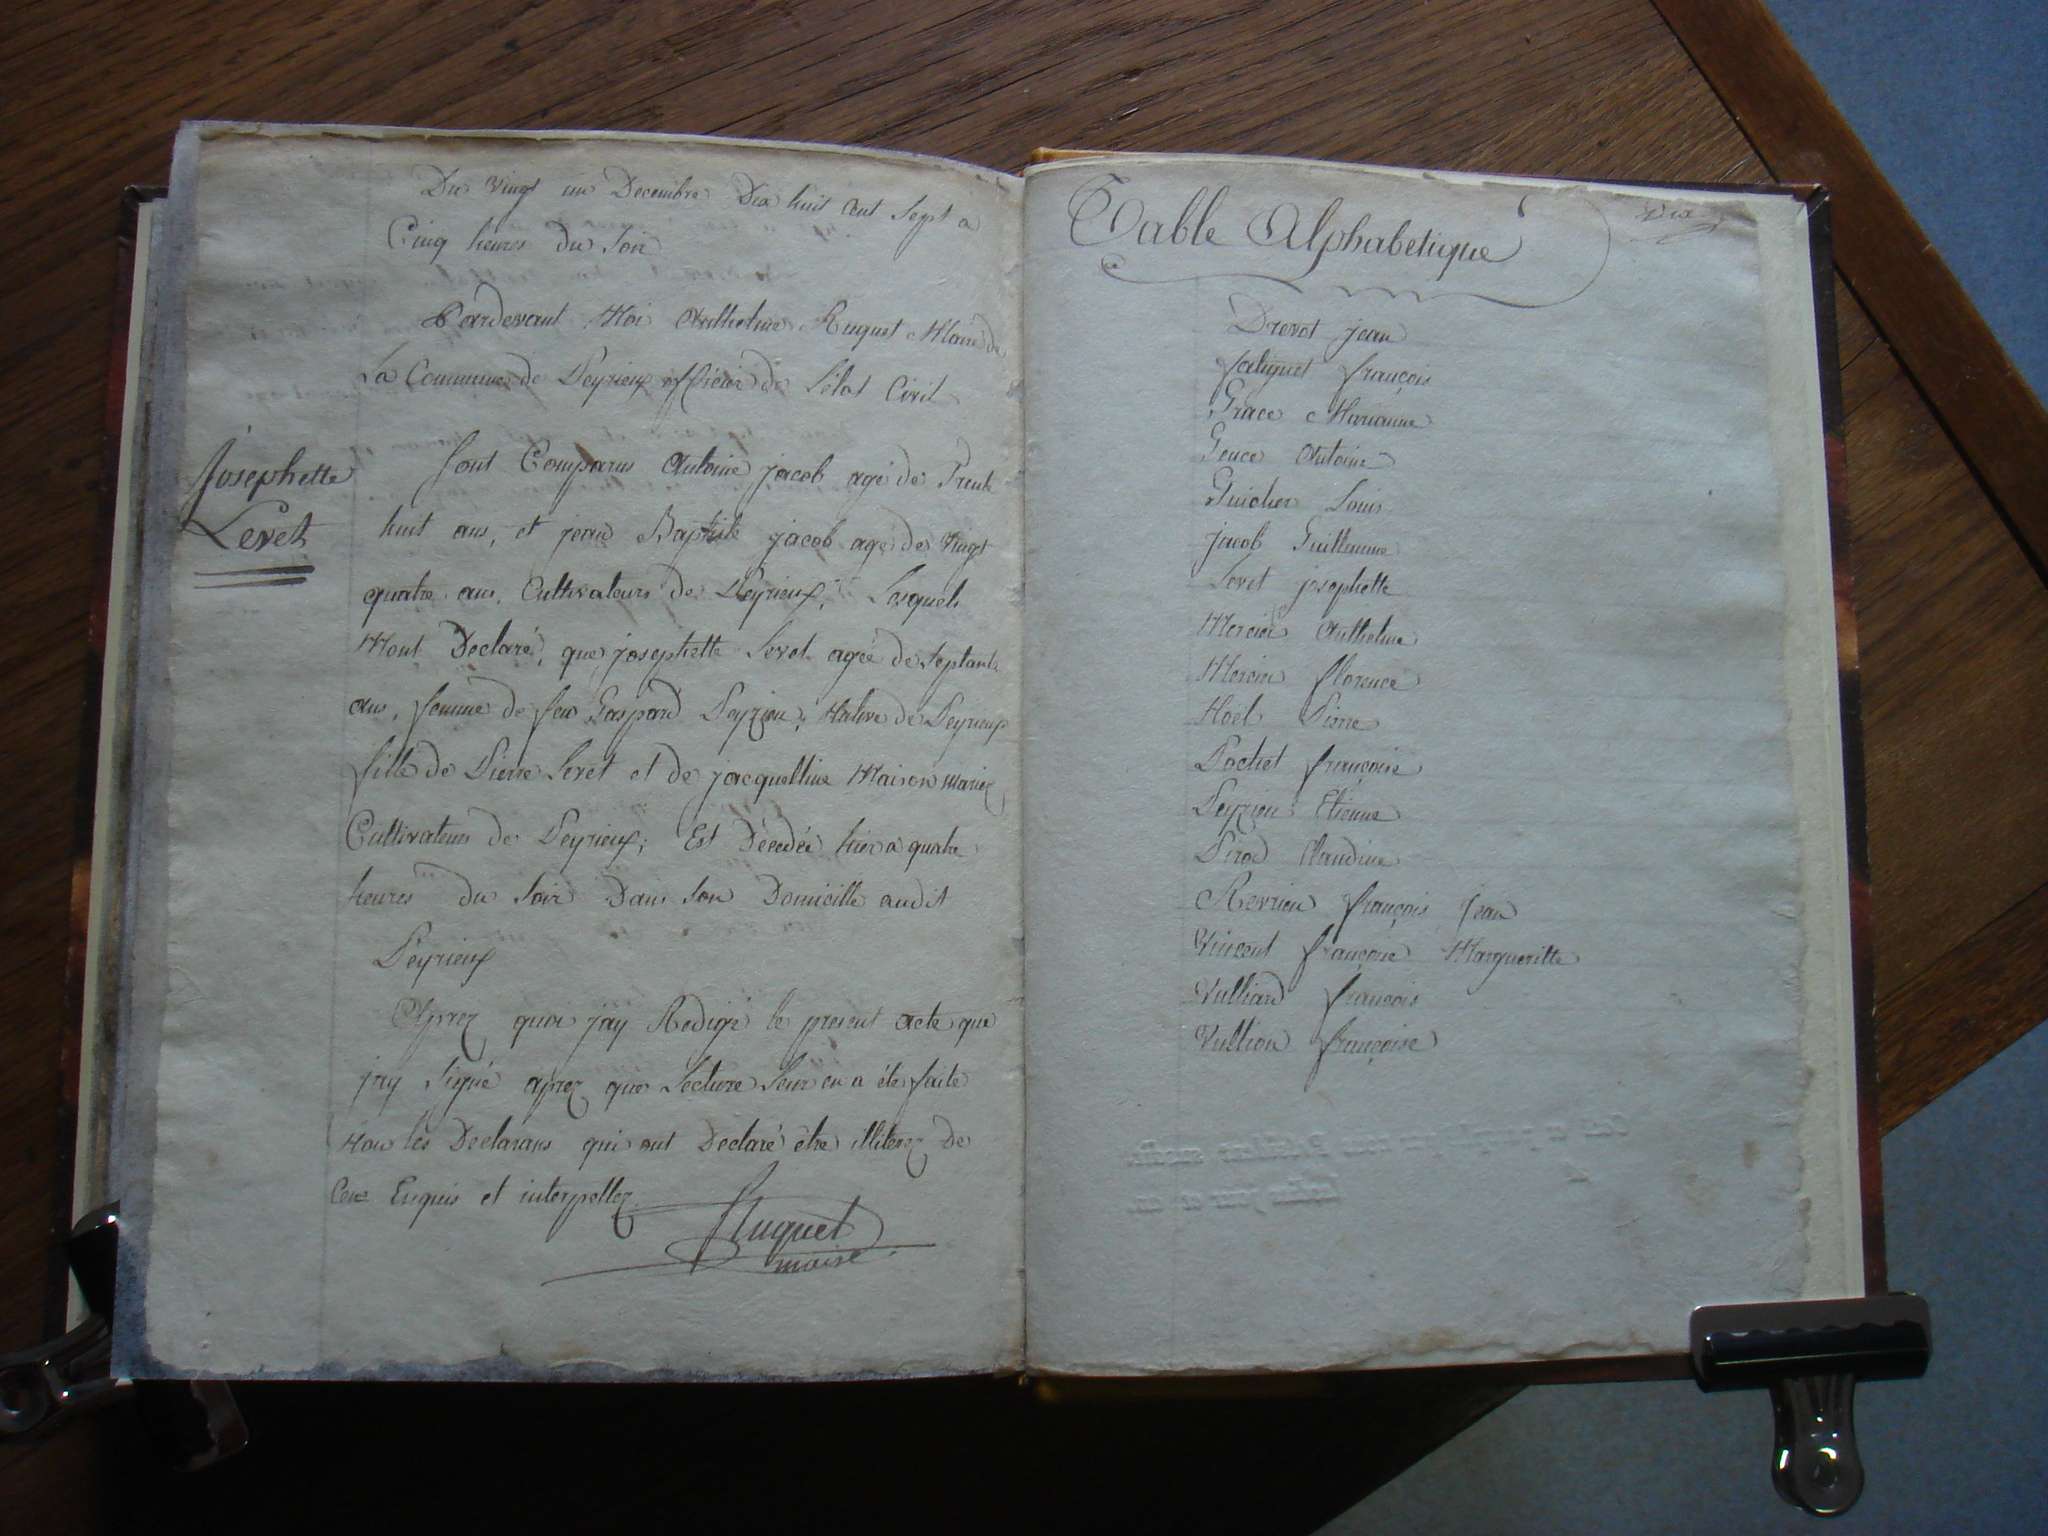 Du vingt un Decembre Dix huit cent Sept a
Cinq heures du Soir
Pardevant Moi Anthelme Huguet Maire de
La Commune de Peyrieux officier de L'état Civil
Josephette
Levet
Sont Comparus Antoine jacob agé de Trente
huit ans, et jean Baptiste jacob agé de vingt
quatre ans, Cultivateurs de Peyrieux, Lesquels
Mont Declaré, que josephette Levet agée de Septante
ans, femme de feu Gaspard Peyzieu, Native de Peyrieux
fille de Pierre Levet et de jacquelline Maison mariez
Cultivateurs de Peyrieux; Est Décedée hier a quatre
heures du Soir Dans Son Domicille audit
Peyrieux
Aprez quoi jay Redigé le present acte que
jay Signé aprez que Lecture Leur en a été faite
Non les Declarans qui ont Declaré être illiterez de
Ce Enquis et interpellez
Huguet
maire
Table Alphabetique
Dix
Drevet jean
faliquet françois
Grace Marianne
Gence Antoine
Guicher Louis
jacob Guillaume
Levet josephette
Mercier Anthelme
Mercier florence
Noël Pierre
Pochet françoise
Peyzieu Etienne
Pirod Claudine
Revrieu françois jean
Vincent françoise Margueritte
Vulliard françois
Vullion françoise